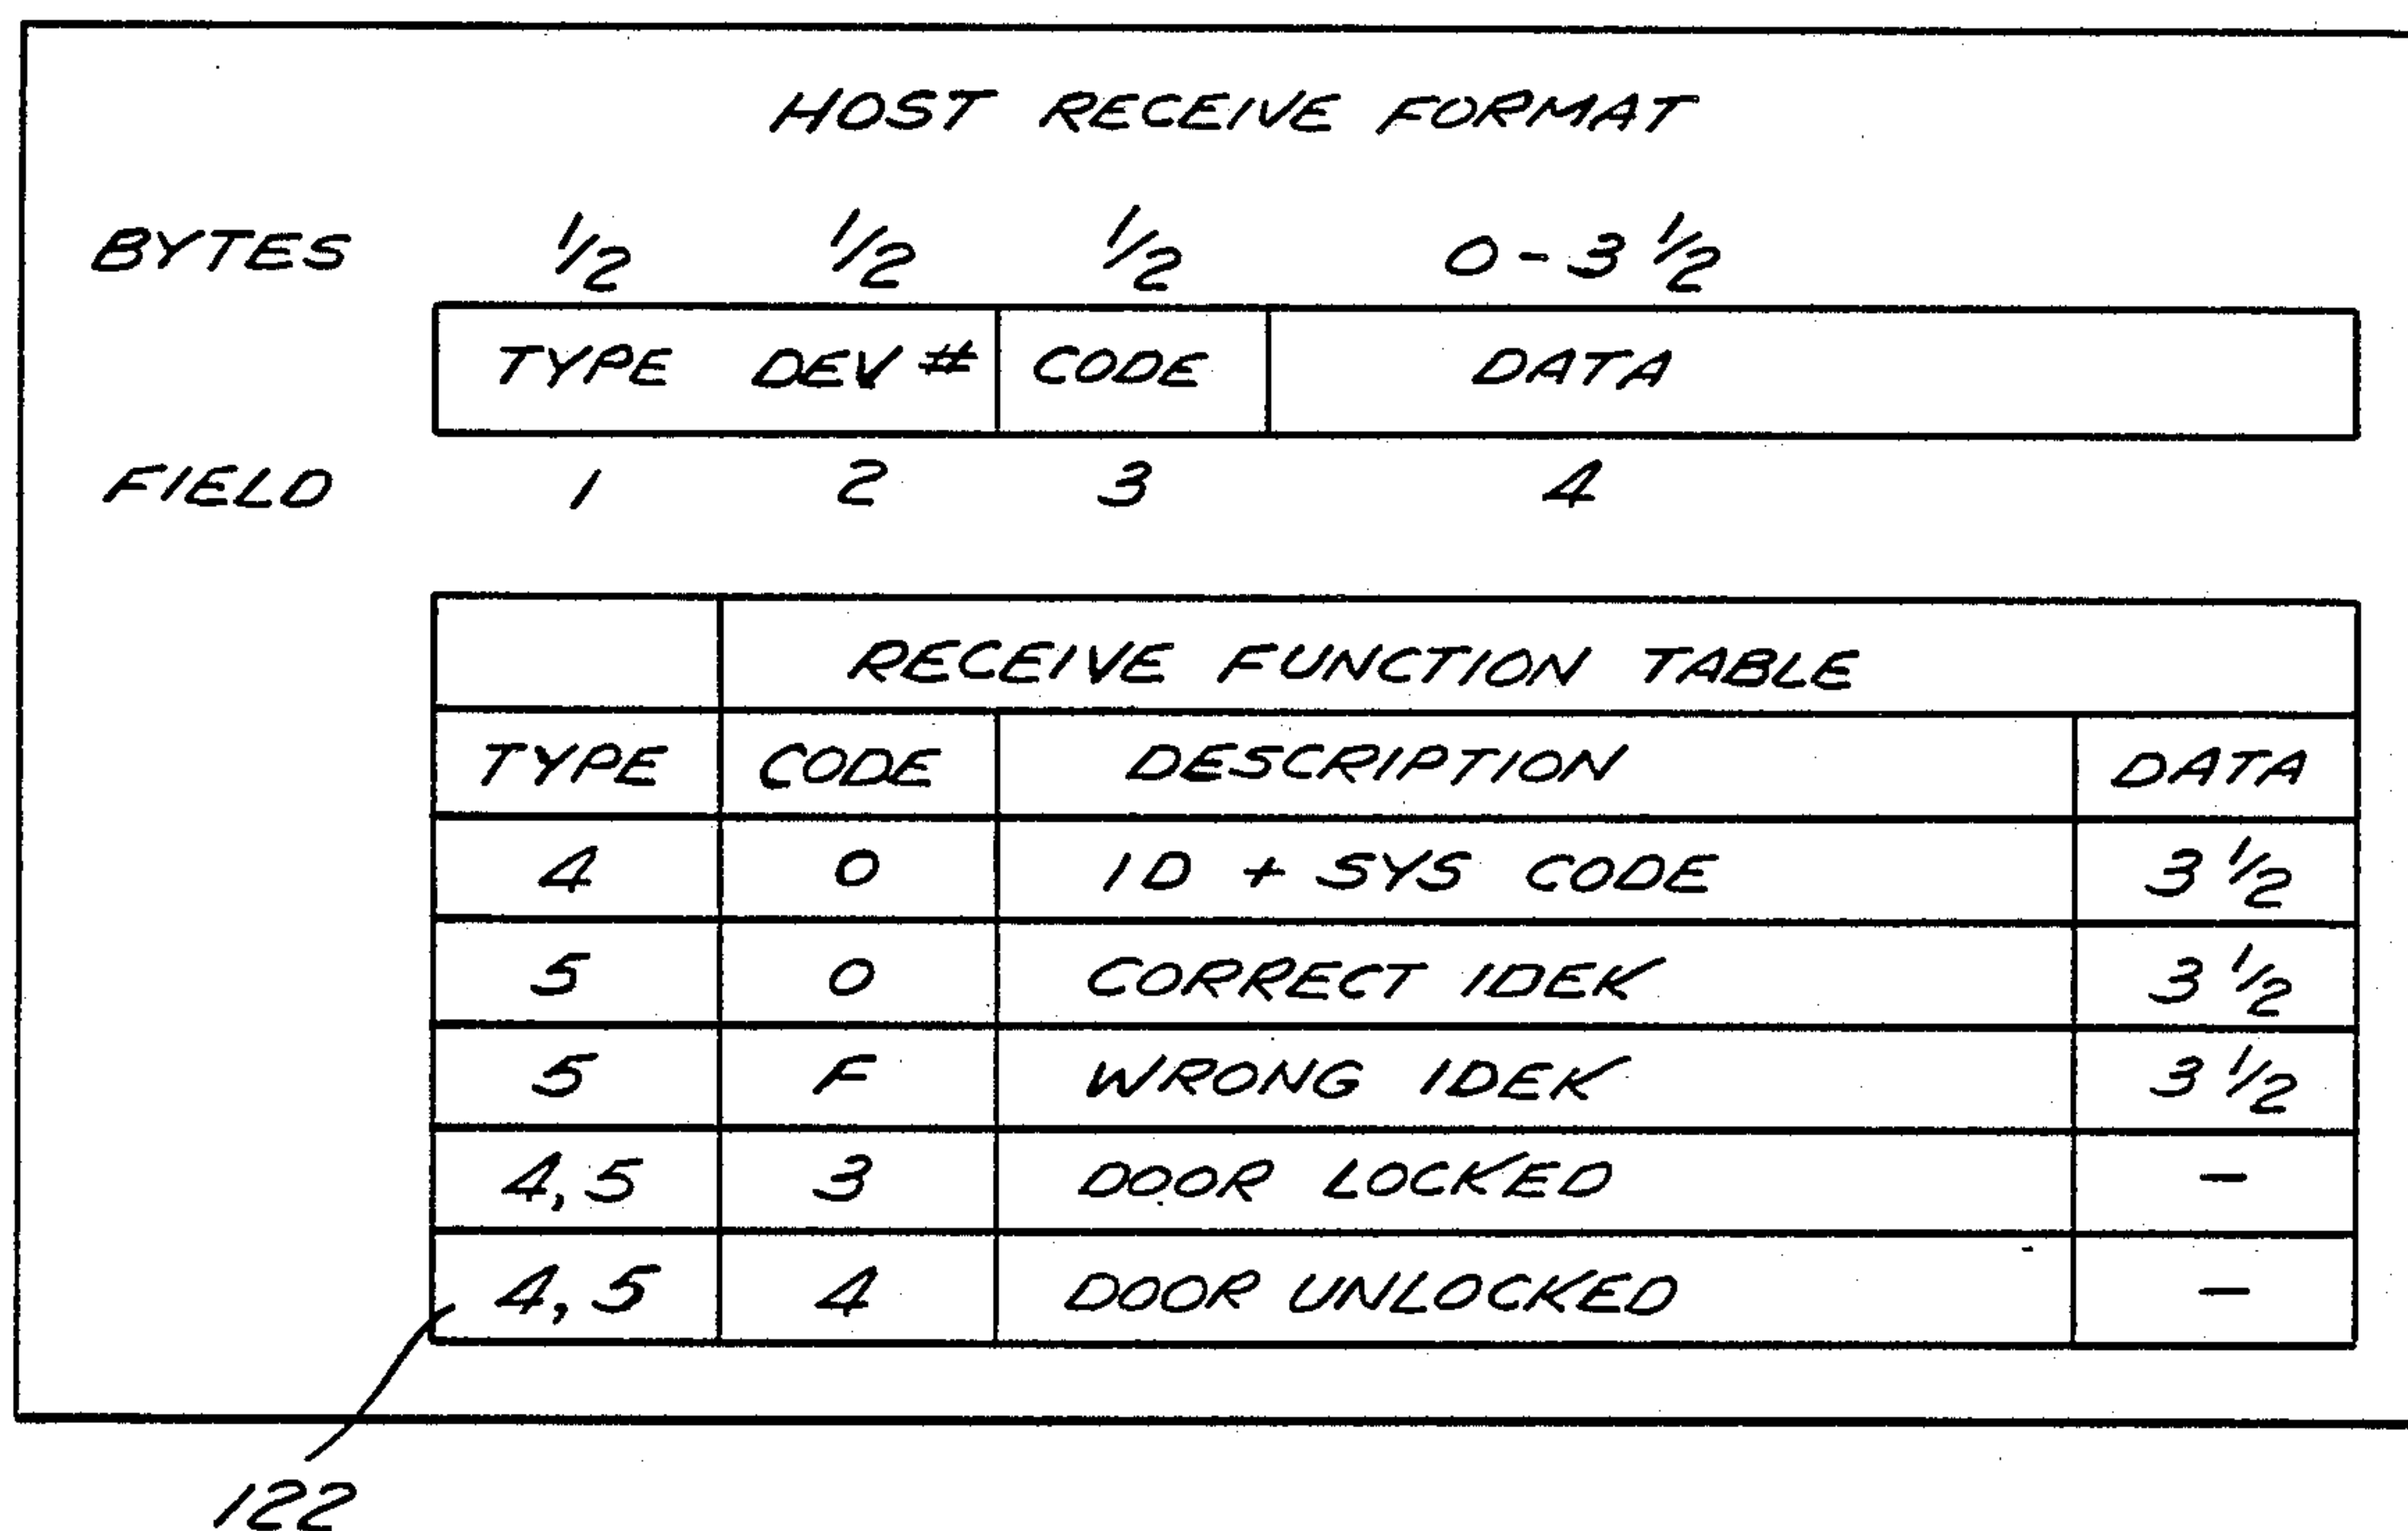 HOST RECEIVE FORMAT
BYTES 1/2 1/2 1/2 0-3 1/2
TYPE DEV # CODE DATA
FIELD 1 2 3 4
RECEIVE FUNCTION TABLE
TYPE CODE DESCRIPTION DATA
4 0 ID + SYS CODE 3 1/2
5 0 CORRECT IDEK 3 1/2
5 F WRONG IDEK 3 1/2
4,5 3 DOOR LOCKED -
4,5 4 DOOR UNLOCKED -
122